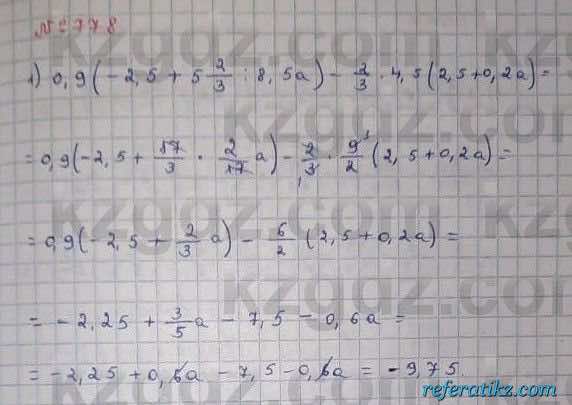 № 778
1) 0,9(-2,5 + 5 2/3 : 8,5a) - 2/3 · 4,5(2,5+0,2a) =
= 0,9(-2,5 + 17/3 · 2/17 a) - 2/3 · 9/2 (2,5+0,2a) =
= 0,9(-2,5 + 2/3 a) - 6/2 (2,5+0,2a) =
= -2,25 + 3/5 a - 7,5 - 0,6a =
= -2,25 + 0,6a - 7,5 - 0,6a = -9,75.
kzgdz.com
referatikz.com